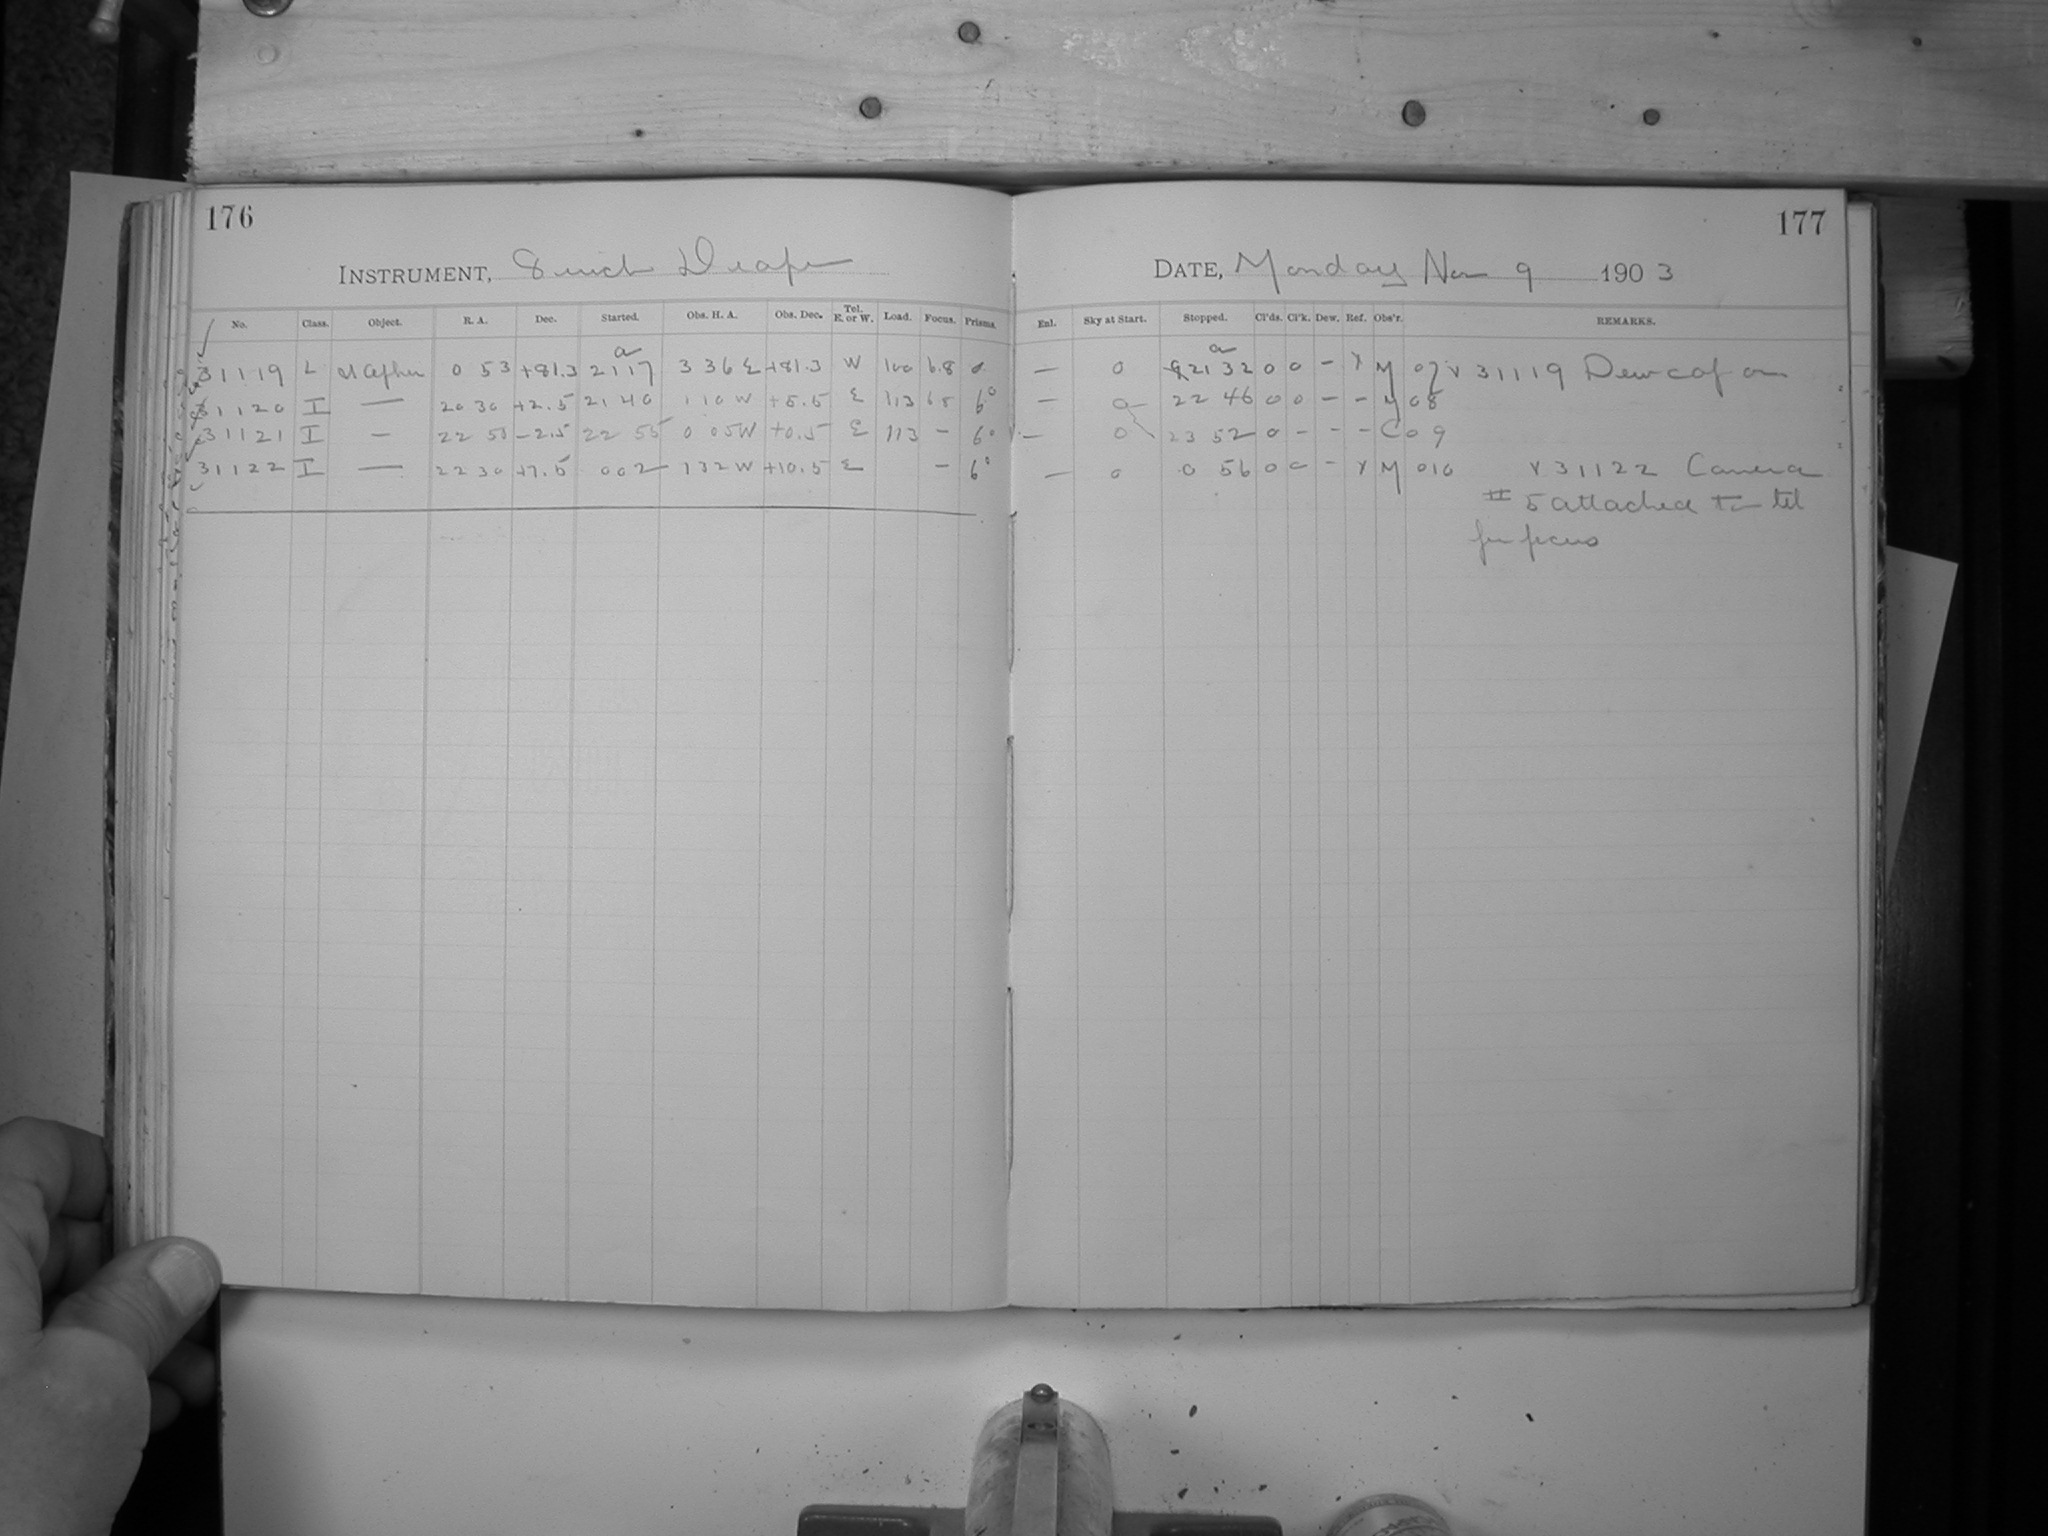 176
INSTRUMENT, 8 inch Draper
No. Class. Object. R. A. Dec. Started. Obs. H. A. Obs. Dec. Tel. E. or W. Load. Focus. Prisms.
31119 L U Cephei 0 53 +81.3 21 17 3 36 E +81.3 W 100 6.8 0
31120 I — 20 30 +2.5 21 40 1 10 W +5.5 E 113 65 6°
31121 I — 22 50 -2.5 22 55 0 05 W +0.5 E 113 - 6°
31122 I — 22 30 +7.5 0 02 1 32 W +10.5 E - 6°
177
DATE, Monday Nov 9 1903
Enl. Sky at Start. Stopped. Cl'ds. Cl'k. Dew. Ref. Obs'r. REMARKS.
— 0 21 32 0 0 - x M 07 v 31119 Dewcap on
— a 22 46 0 0 - - M 08
— 0 23 52 0 - - - C 09
— 0 0 56 0 0 - x M 010 v 31122 Camera
# 5 attached to tel
for focus